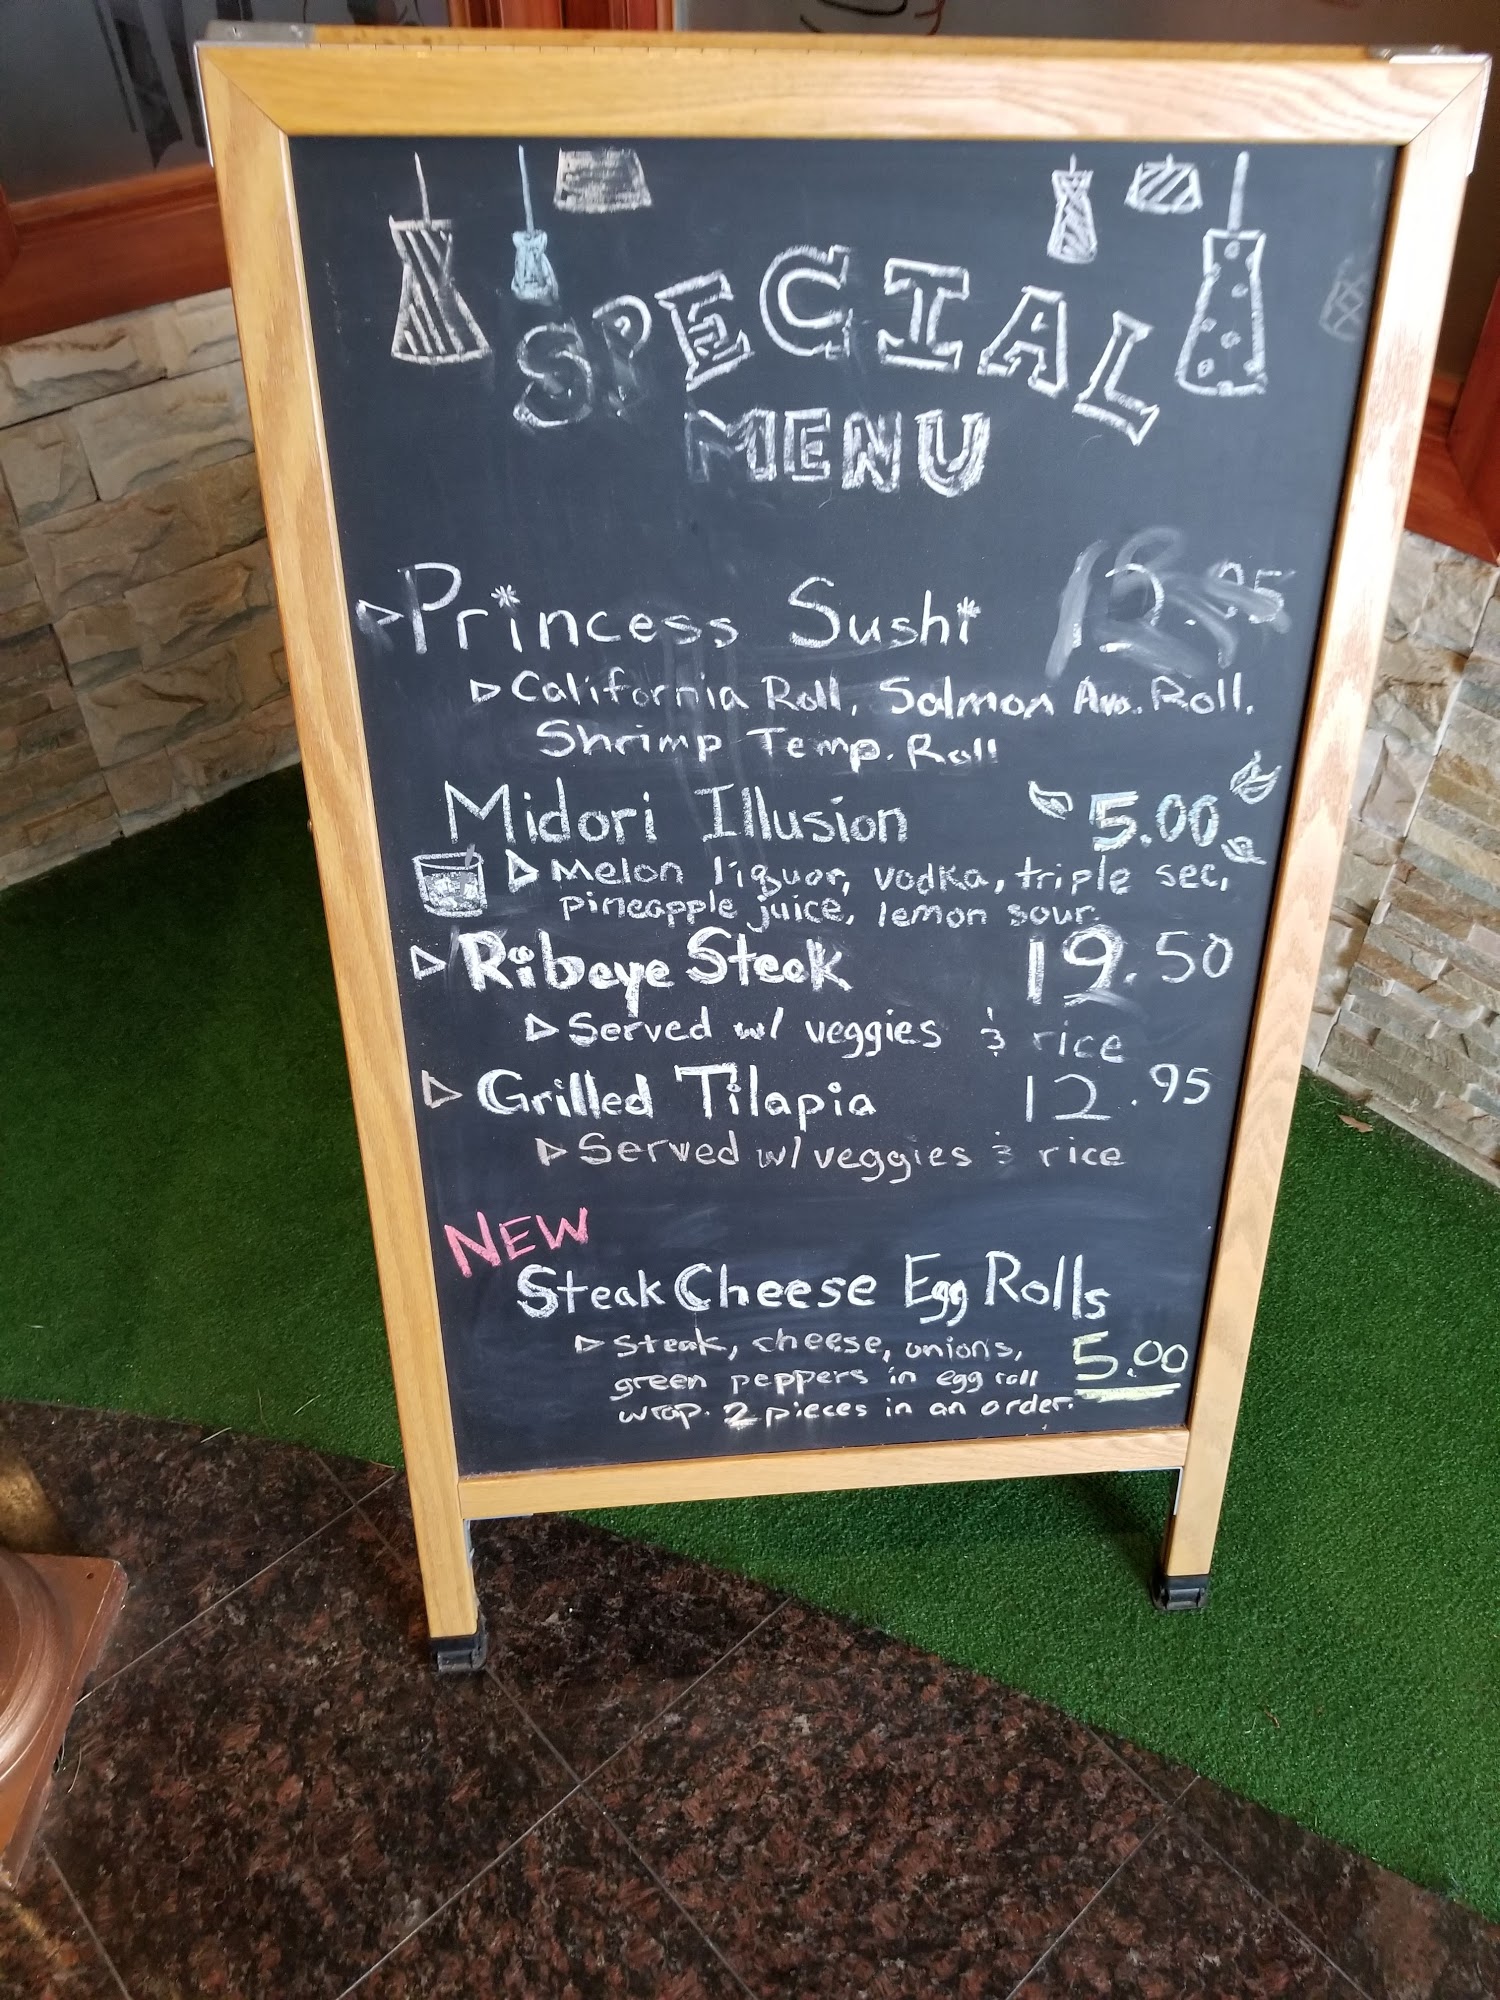 SPECIAL
MENU
Princess Sushi
California Roll, Salmon Avo. Roll,
Shrimp Temp. Roll
Midori Illusion 5.00
Melon liquor, vodka, triple sec,
pineapple juice, lemon sour.
Ribeye Steak 19.50
Served w/ veggies & rice
Grilled Tilapia 12.95
Served w/ veggies & rice
NEW
Steak Cheese Egg Rolls
Steak, cheese, onions, 5.00
green peppers in egg roll
wrap. 2 pieces in an order.